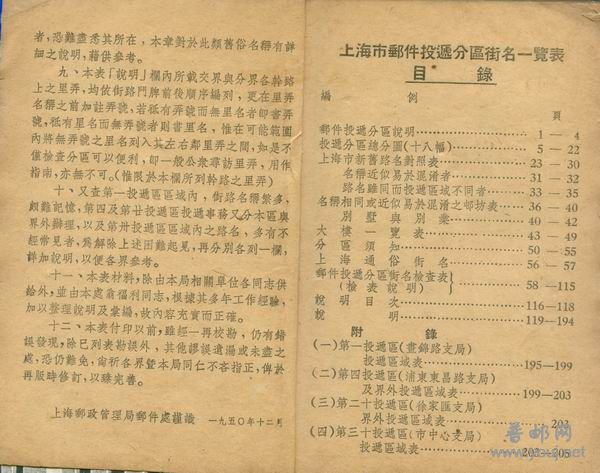 者，恐難盡悉其所在，本章對於此類舊俗名稱有詳
細之說明，藉供參考。
九、本表「說明」欄內所載交界與分界各幹路
上之里弄，均依街路門牌前後順序編列，更在里弄
名稱之前加註弄號，若祗有弄號而無里名者即書弄
號，祗有里名而無弄號者則書里名，惟在可能範圍
內將無弄號之里名列入其左右鄰里弄之間，如是不
僅檢查分區可以便利，即一般公衆尋訪里弄，用作
指南，亦無不可。（惟限於本欄所列幹路之里弄）
十、又查第一投遞區區域內，街路名稱繁多，
頗難記憶，第四及第廿投遞區投遞事務又分本區與
界外辦理，以及第卅投遞區區域內之路名，多有不
經常見者，爲解除上述困難起見，再分別各列一欄，
詳加說明，以便各界參考。
十一、本表材料，除由本局相關單位各同志供
給外，並由本處翁福利同志，根據其多年工作經驗，
加以整理說明及彙編，故內容充實而正確。
十二、本表付印以前，雖經一再校勘，仍有錯
誤發現，除已列表勘誤外，其他謬誤遺漏或未盡之
處，恐仍難免，尙祈各界暨本局同仁不吝指正，俾於
再版時修訂，以臻完善。
上海郵政管理局郵件處謹識 一九五〇年十二月
上海市郵件投遞分區街名一覽表
目 錄
編 例
頁
郵件投遞分區說明 1—4
投遞分區總分圖（十八幅） 5—22
上海市新舊路名對照表 23—30
名稱近似易於混淆者 31—32
路名雖同而投遞區域不同者 33—35
名稱相同或近似易於混淆之邨坊表 36—40
別墅與別業 40—42
大樓一覽表 43—49
分區須知 50—55
上海通俗街名 56—57
郵件投遞分區街名檢查表
（檢表說明） 58—115
說明目次 116—118
說明 119—194
附 錄
（一）第一投遞區（畫錦路支局）
投遞區域表 195—199
（二）第四投遞區（浦東東昌路支局）
及界外投遞區域表 199—203
（三）第二十投遞區（徐家匯支局）
界外投遞區域表 203
（四）第三十投遞區（市中心支局）
投遞區域表 203—205
普邮网